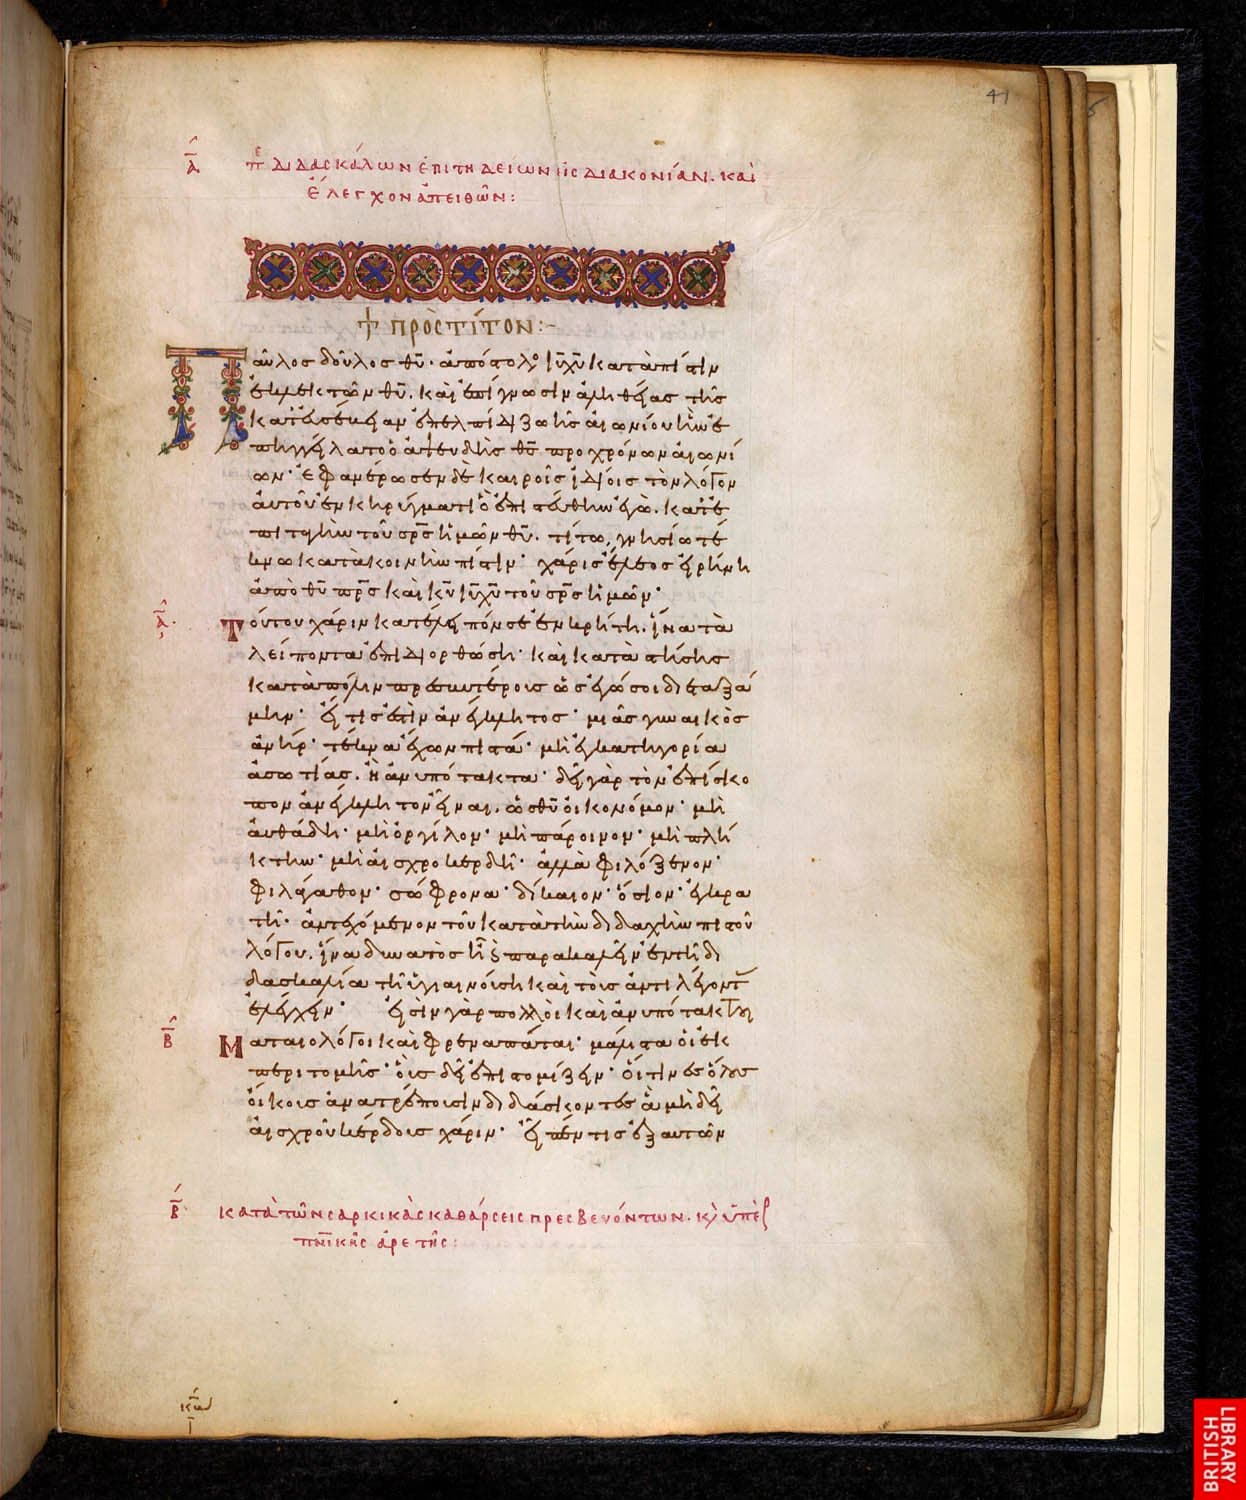 41
Α̅ πε διδασκάλων ἐπιτηδείων εἰς διακονίαν. καὶ
ἔλεγχον ἀπειθῶν:
+ ΠΡΟΣ ΤΙΤΟΝ:-
Παῦλος δοῦλος θῦ· ἀπόστολος ἰῦ χῦ κατὰ πίστιν
ἐκλεκτῶν θῦ. καὶ ἐπίγνωσιν ἀληθείας τῆς
κατ' εὐσέβειαν ἐπ' ἐλπίδι ζωῆς αἰωνίου ἣν ἐ
πηγγείλατο ὁ ἀψευδὴς θς πρὸ χρόνων αἰωνί
ων· ἐφανέρωσεν δὲ καιροῖς ἰδίοις τὸν λόγον
αὐτοῦ ἐν κηρύγματι ὃ ἐπιστεύθην ἐγὼ. κατ' ἐ
πιταγὴν τοῦ σρς ἡμῶν θῦ. τίτω γνησίω τέ
κνω κατὰ κοινὴν πίστιν· χάρις ἔλεος εἰρήνη
ἀπὸ θῦ πρς καὶ κῦ ἰῦ χῦ τοῦ σρς ἡμῶν·
Α̅ Τούτου χάριν κατέλειπόν σε ἐν κρήτη. ἵνα τὰ
λείποντα ἐπιδιορθώση· καὶ καταστήσης
κατὰ πόλιν πρεσβυτέροις ὡς ἐγώ σοι διεταξά
μην· εἴ τις ἐστὶν ἀνέγκλητος· μιᾶς γυναικὸς
ἀνήρ· τέκνα ἔχων πιστά· μὴ ἐν κατηγορία
ἀσωτίας. ἢ ἀνυπότακτα· δεῖ γὰρ τὸν ἐπίσκο
πον ἀνέγκλητον εἶναι. ὡς θῦ οἰκονόμον· μὴ
αὐθάδη· μὴ ὀργίλον· μὴ πάροινον· μὴ πλή
κτην· μὴ αἰσχροκερδῆ· ἀλλὰ φιλόξενον·
φιλάγαθον· σώφρονα· δίκαιον· ὅσιον· ἐγκρα
τῆ· ἀντεχόμενον τοῦ κατὰ τὴν διδαχὴν πιστοῦ
λόγου. ἵνα δυνατὸς ᾖ καὶ παρακαλεῖν ἐν τῆ δι
δασκαλία τῆ ὑγιαινούση καὶ τοὺς ἀντιλέγοντας
ἐλέγχειν· εἰσὶν γὰρ πολλοὶ καὶ ἀνυπότακτοι
Β̅ Ματαιολόγοι καὶ φρεναπάται· μάλιστα οἱ ἐκ
περιτομῆς· οἷς δεῖ ἐπιστομίζειν· οἵτινες ὅλους
οἴκοις ἀνατρέποισιν διδάσκοντες ἃ μὴ δεῖ
αἰσχροῦ κέρδοις χάριν· εἶπέν τις ἐξ αὐτῶν
Β̅ κατὰ τῶν σαρκικὰς καθάρσεις πρεσβευόντων. καὶ ὑπὲρ
πνικῆς ἀρετῆς:
BRITISH
LIBRARY